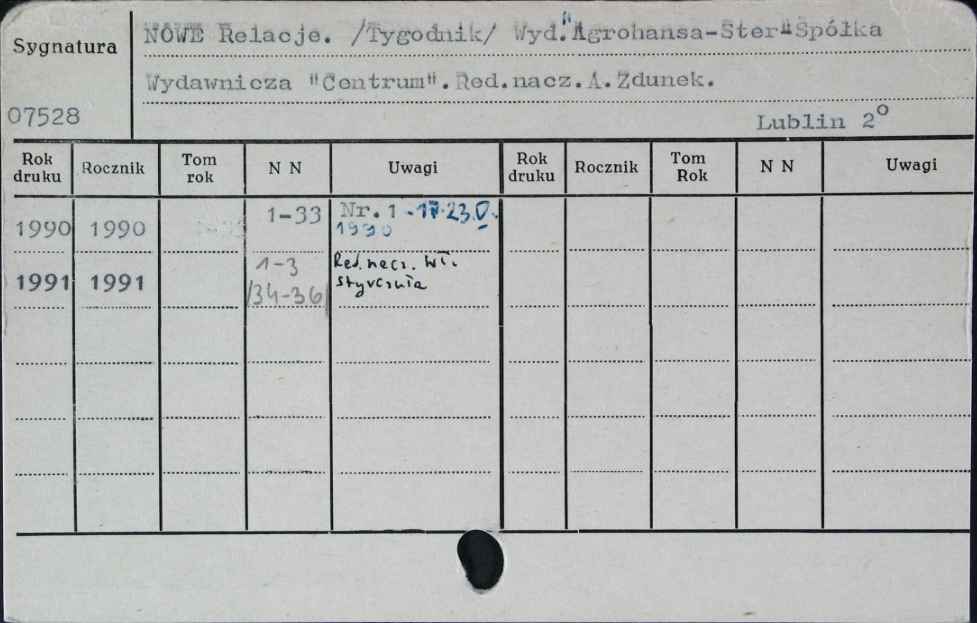 Sygnatura
NOWE Relacje. /Tygodnik/ Wyd."Agrohansa-Ster"Spółka
Wydawnicza "Centrum".Red.nacz.A.Zdunek.
07528
Lublin 2°
Rok druku Rocznik Tom rok N N Uwagi Rok druku Rocznik Tom Rok N N Uwagi
1990 1990 1-33 Nr. 1 - 17.23.V.
1990
1991 1991 1-3 Red. nacz. Wł.
/34-36/ Styrcznia